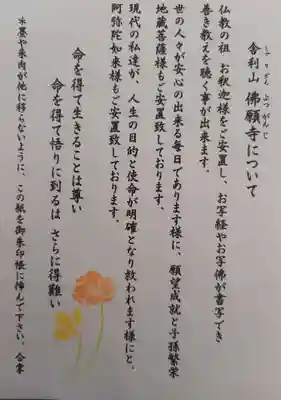 しゃりざん ぶつがんじ
舎利山 佛願寺について
仏教の祖 お釈迦様をご安置し、お写経やお写佛が書写でき
善き教えを聴く事が出来ます。
世の人々が安心の出来る毎日であります様に、願望成就と子孫繁栄
地蔵菩薩様もご安置致しております。
現代の私達が、人生の目的と使命が明確となり救われます様にと、
阿弥陀如来様もご安置致しております。
命を得て生きることは尊い
命を得て悟りに到るは さらに得難い
※墨や朱肉が他に移らないように、この紙を御朱印帳に挿んで下さい。 合掌